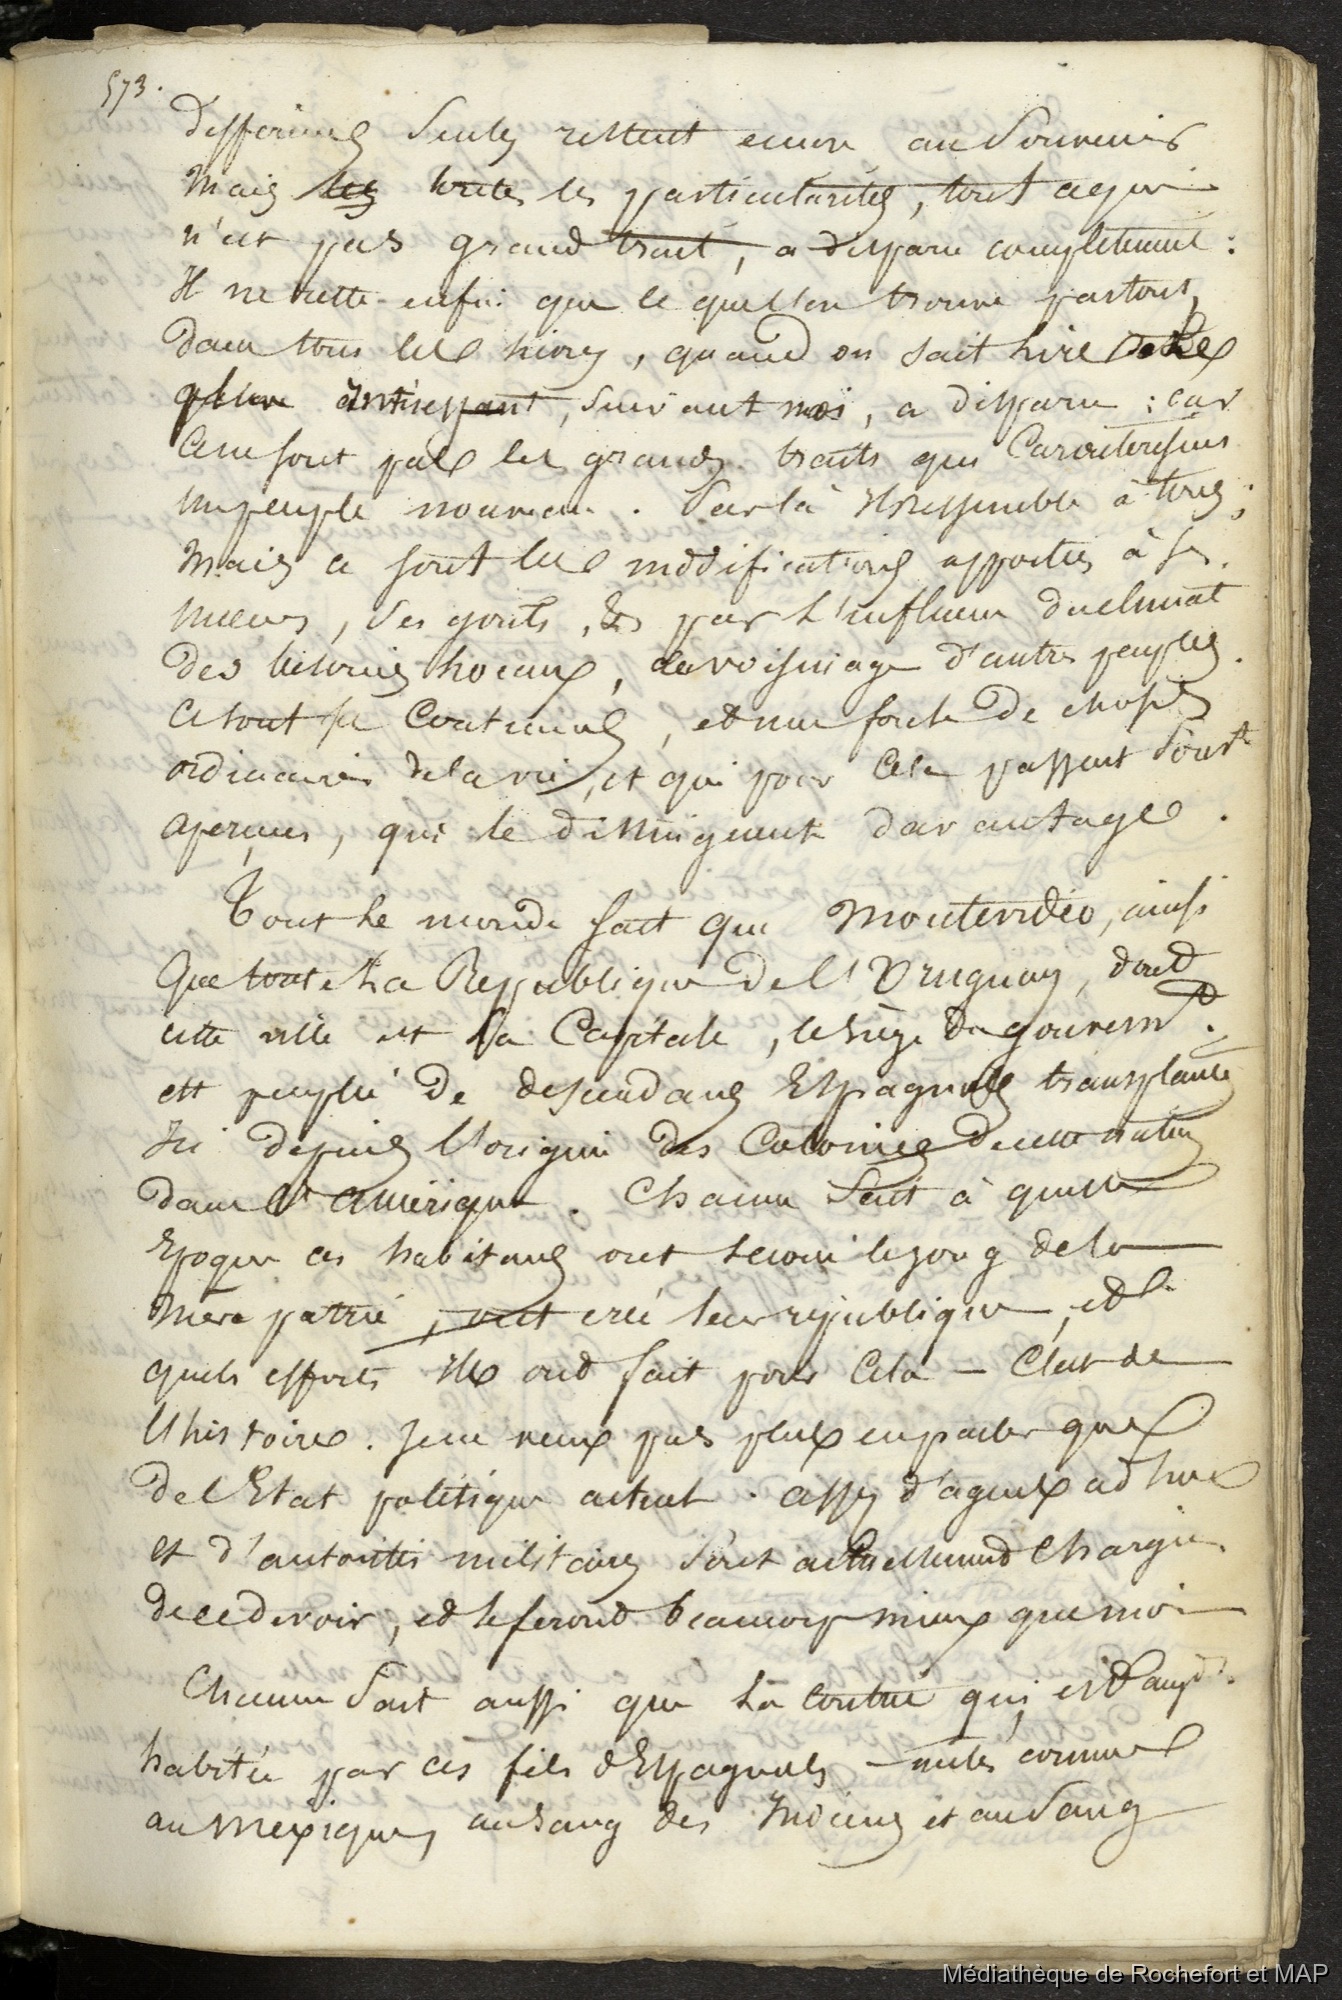 573.
differens seuls restent encore au souvenir
Mais les toutes les particularités, tout ce qui
n'est pas grand trait, a disparu complètement :
Il ne reste enfin que ce que l'on trouve partout,
dans tous les livres, quand on sait lire
plus intéressant, suivant moi, a disparu : car
ce ne sont pas les grands traits qui caracterisent
un peuple nouveau. Par là il ressemble à tous ;
Mais ce sont les modifications apportées à ses
mœurs, ses gouts, &c par l'influence du climat
des besoins locaux, du voisinage d'autres peuples.
ce sont ses coutumes, et une foule de choses
ordinaires de la vie, et qui pour cela passent souvt
aperçues, qui le distinguent davantage.
Tout le monde sait que Montevidéo, ainsi
que toute la Republique de l'Uruguay, dont
cette ville est la Capitale, le siège du gouvernt.
est peuplé de descendans Espagnols transplantés
Ici depuis l'origine des Colonies de cette nation
dans l'amérique. Chacun sait à quelle
Epoque ces habitans ont secoué le joug de la
Mère patrie, ont créé leur république, et
quels efforts ils ont fait pour cela — C'est de
l'histoire. Je ne veux pas plus en parler que
de l'Etat politique actuel. assez d'agens ad hoc
et d'autorités militaires sont actuellement chargés
de ce devoir, et le feront beaucoup mieux que moi
Chacun sait aussi que la contrée qui est aujd.
habitée par ces fils d'Espagnols — mêlés comme
au Mexique, au sang des Indiens et au sang
Médiathèque de Rochefort et MAP